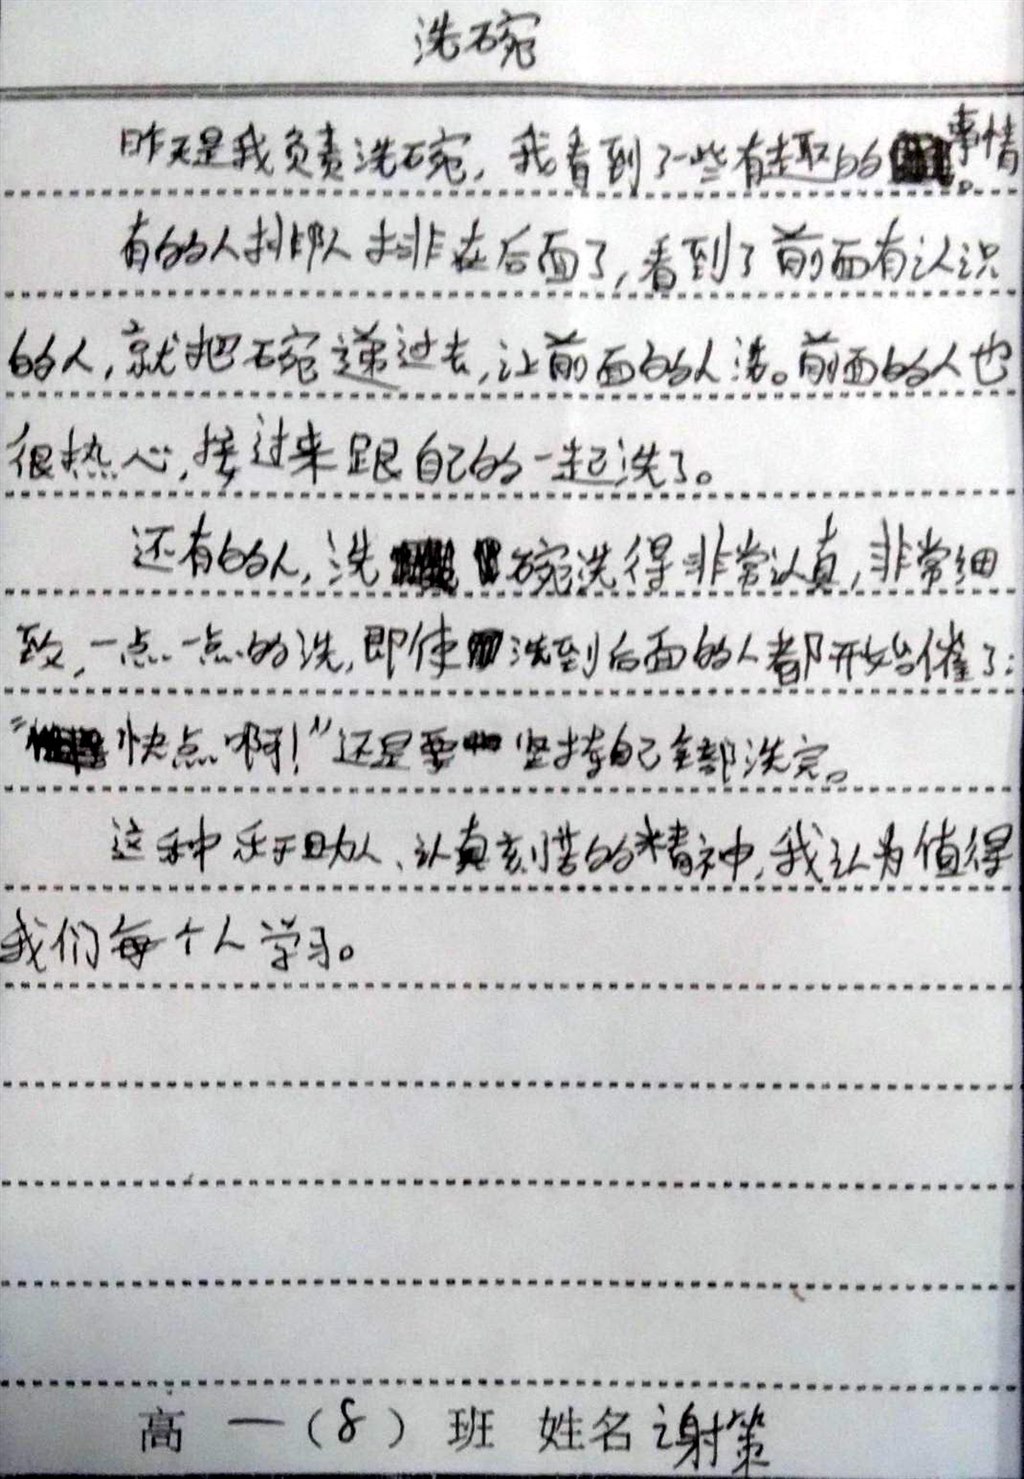 洗碗
昨天是我负责洗碗，我看到了一些有趣的事情。
有的人排队排在后面了，看到了前面有认识
的人，就把碗递过去，让前面的人洗。前面的人也
很热心，接过来跟自己的一起洗了。
还有的人，洗碗洗得非常认真，非常细
致，一点一点的洗，即使洗到后面的人都开始催了：
“快点啊！”还是要坚持自己全部洗完。
这种乐于助人、认真刻苦的精神，我认为值得
我们每个人学习。
高一（8）班 姓名 谢策